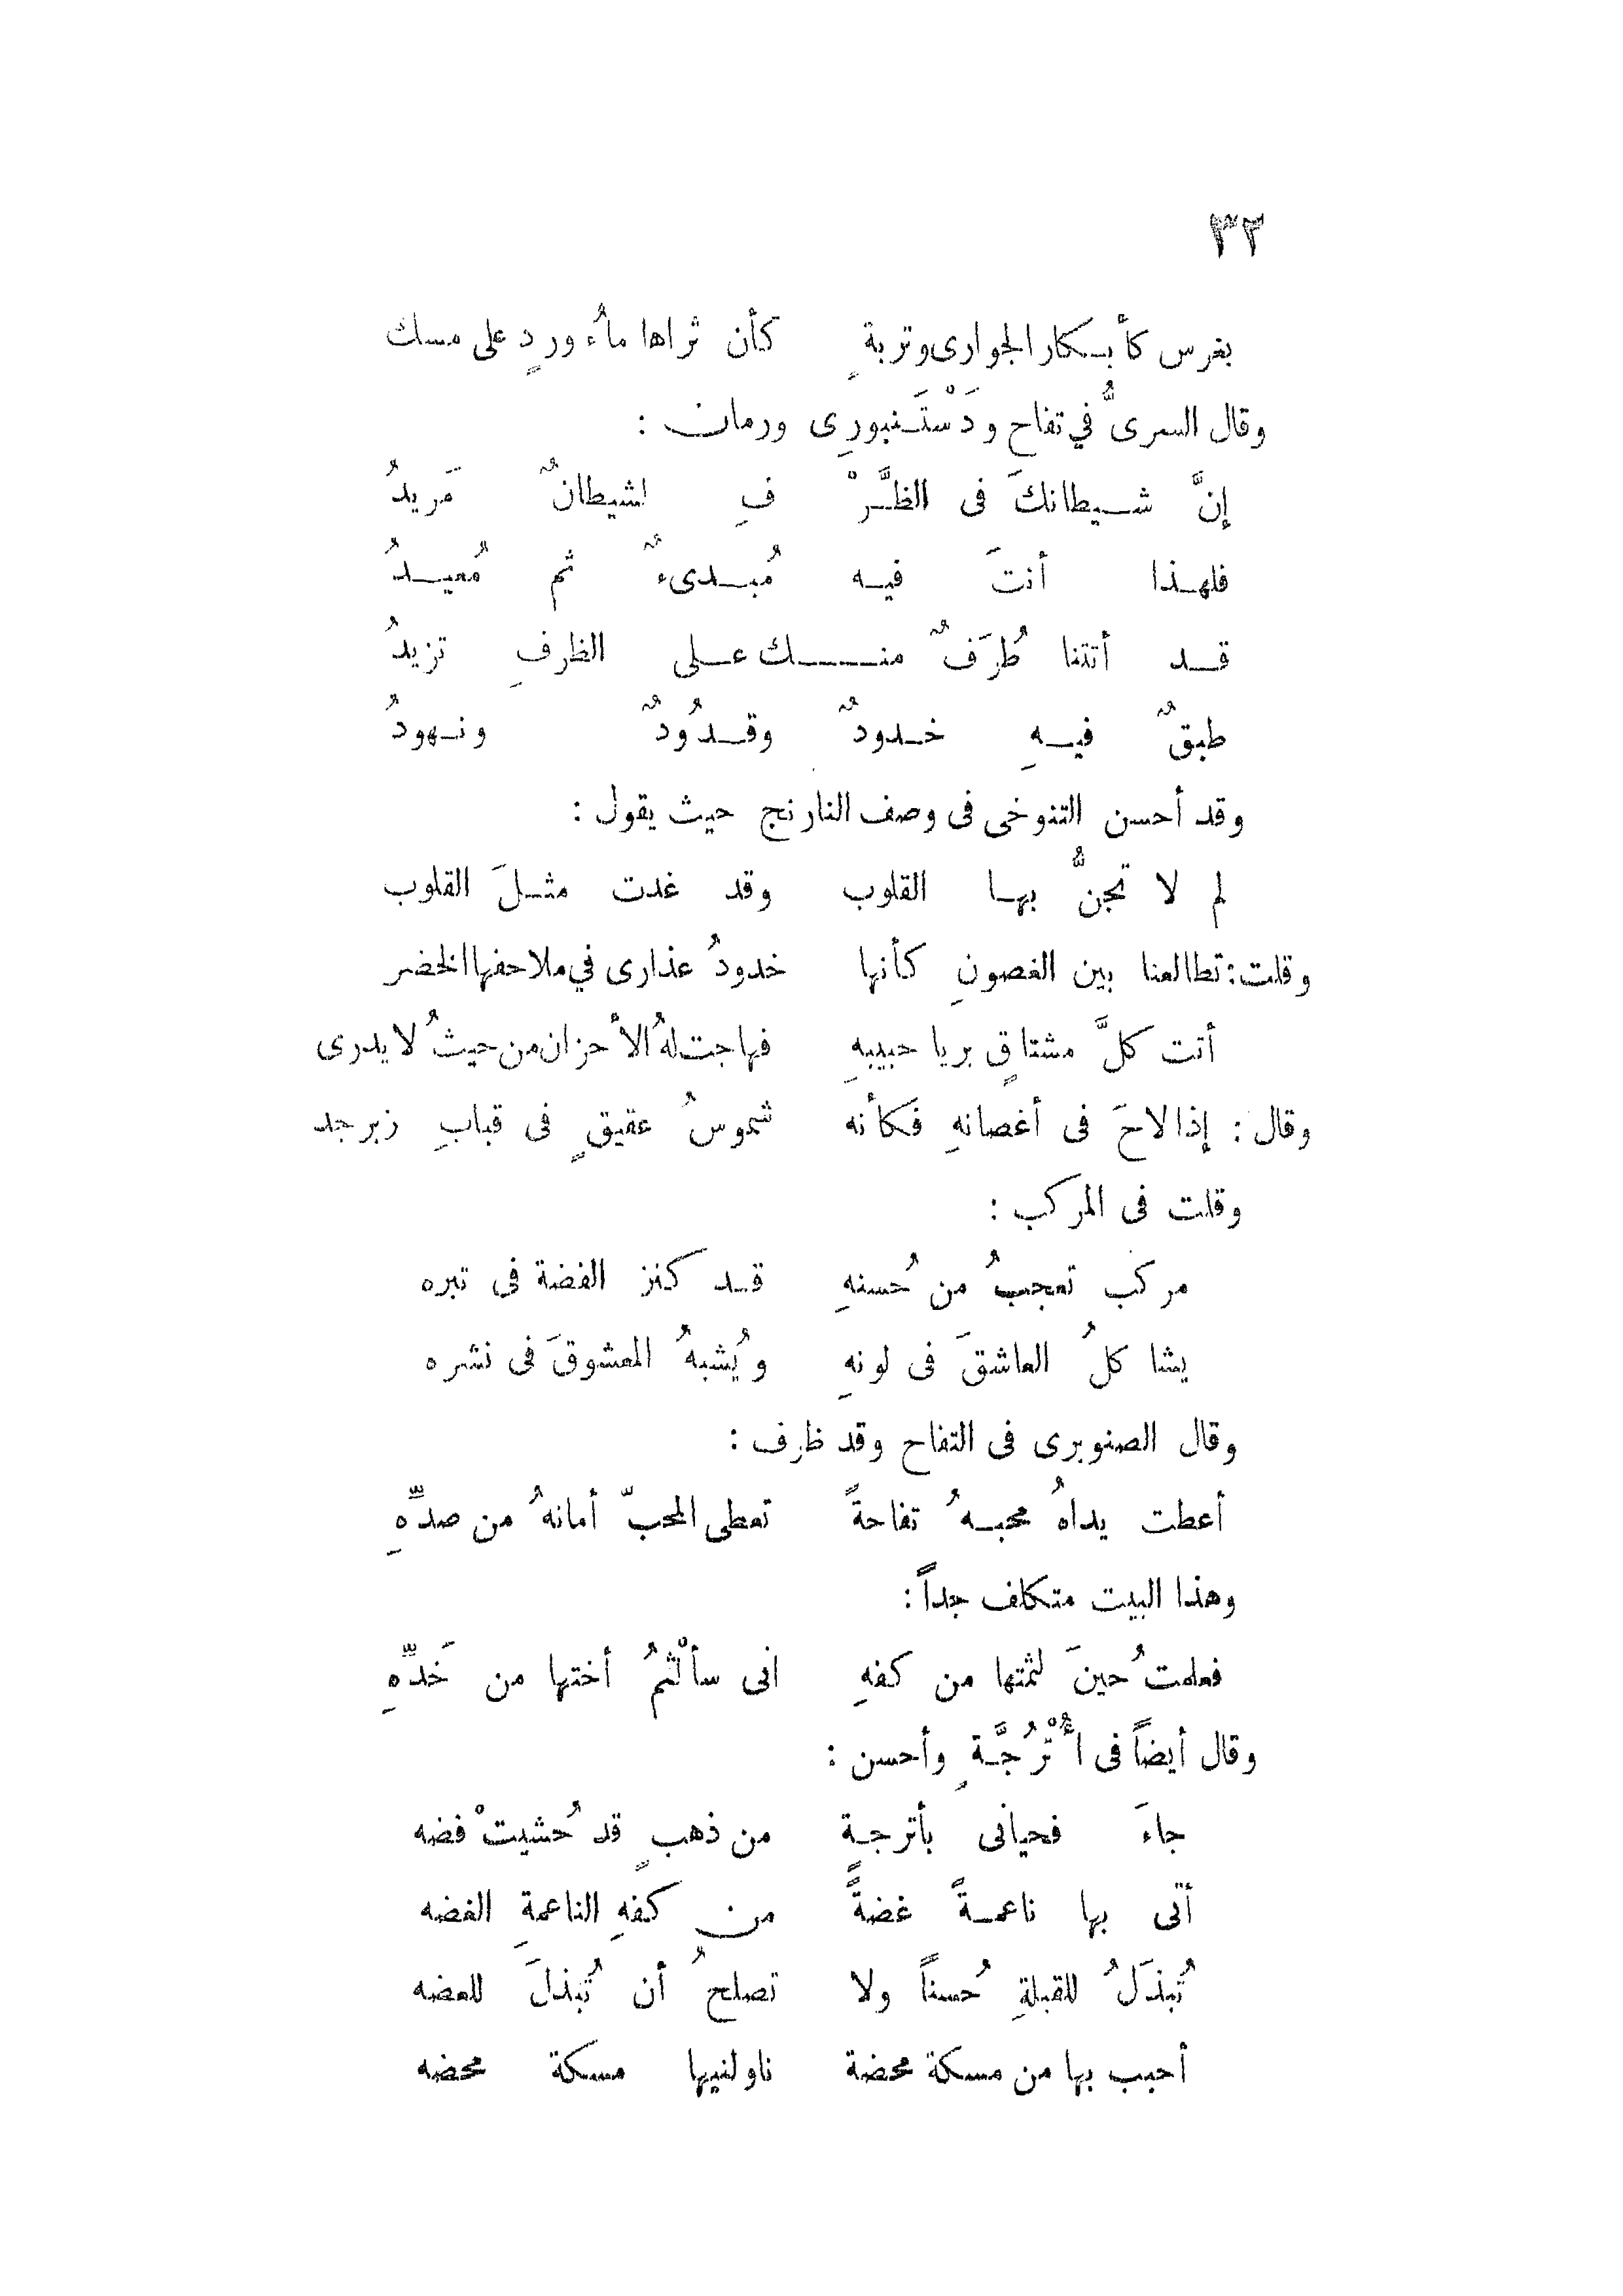 ٣٢
بغرس كأبكار الجوارى وتربةٍ كأن ثراها ماءُ وردٍ على مسك
وقال السرىُّ في تفاح ودَسْتَنبورِى ورمان :
إنَّ شيطانكَ فى الظَّرْ فِ لشيطانٌ مَريدُ
فلهذا أنتَ فيه مُبدىءٌ ثم مُعيدُ
قد أتتنا طُرَفٌ منك على الظرفِ تزيدُ
طبقٌ فيهِ خدودٌ وقدُودٌ ونهودُ
وقد أحسن التنوخى فى وصف النارنج حيث يقول :
لم لا تجنُّ بها القلوب وقد غدت مثلَ القلوب
وقلت : تطالعنا بين الغصونِ كأنها خدودُ عذارى في ملاحفها الخضر
أتت كلَّ مشتاقٍ بريا حبيبهِ فهاجت لهُ الأحزان من حيثُ لا يدرى
وقال : إذا لاحَ فى أغصانهِ فكأنه شموسُ عقيقٍ فى قبابِ زبرجد
وقلت فى المركب :
مركب تعجبُ من حُسنهِ قد كنز الفضة فى تبره
يشاكلُ العاشقَ فى لونهِ ويُشبهُ المعشوقَ فى نشره
وقال الصنوبرى فى التفاح وقد ظرف :
أعطت يداهُ محبهُ تفاحةً تعطى المحبّ أمانهُ من صدِّهِ
وهذا البيت متكلف جداً :
فعلمتُ حينَ لثمتها من كفهِ انى سألْثمُ أختها من خَدِّهِ
وقال أيضاً فى أُتْرُجَّةٍ وأحسن :
جاءَ فحيانى بأترجةٍ من ذهبٍ قد حُشيتْ فضه
أتى بها ناعمةً غضةً من كفهِ الناعمةِ الغضه
تُبذَلُ للقبلةِ حُسناً ولا تصلحُ أن تُبذلَ للعضه
أحبب بها من مسكة محضة ناولنيها مسكة محضه